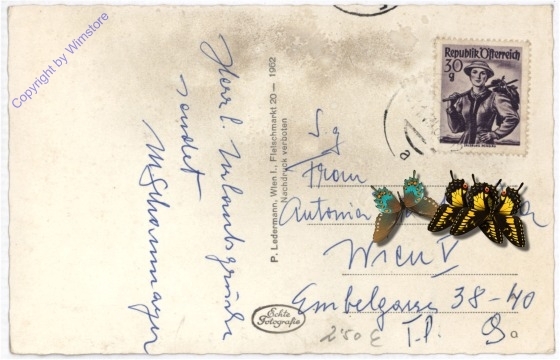 Copyright by Wimstore
Herzl. Urlaubsgrüße
sendet
P. Ledermann, Wien I., Fleischmarkt 20 — 1962
Nachdruck verboten
Echte
Fotografie
Republik Österreich
30
g
a
Sg
Frau
Antonia
Wien V
Embelgasse 38-40
2'50 €